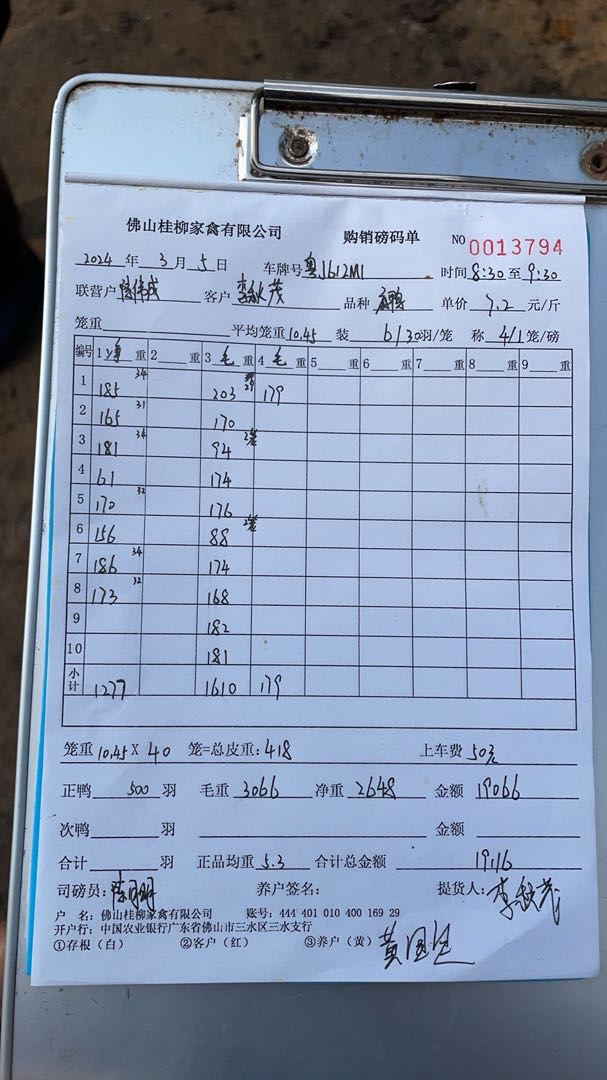 佛山桂柳家禽有限公司 购销磅码单 NO 0013794
2024 年 3 月 5 日 车牌号 粤J612M1 时间 8:30 至 9:30
联营户 客户 李秋茂 品种 单价 7.2 元/斤
笼重 平均笼重 10.45 装 6/30 羽/笼 称 4/1 笼/磅
编号 1 净 重 2 重 3 毛 重 4 毛 重 5 重 6 重 7 重 8 重 9 重
1 185 34 203 29 179
2 165 31 170
3 181 34 94 2笼
4 61 174
5 170 32 176
6 156 88 2笼
7 186 34 174
8 173 32 168
9 182
10 181
小计 1277 1610 179
笼重 10.45 X 40 笼=总皮重: 418 上车费 50元
正鸭 500 羽 毛重 3066 净重 2648 金额 19066
次鸭 羽 金额
合计 羽 正品均重 5.3 合计总金额 19116
司磅员: 养户签名: 提货人: 李秋茂
户 名: 佛山桂柳家禽有限公司 账号: 444 401 010 400 169 29
开户行: 中国农业银行广东省佛山市三水区三水支行
①存根(白) ②客户(红) ③养户(黄)